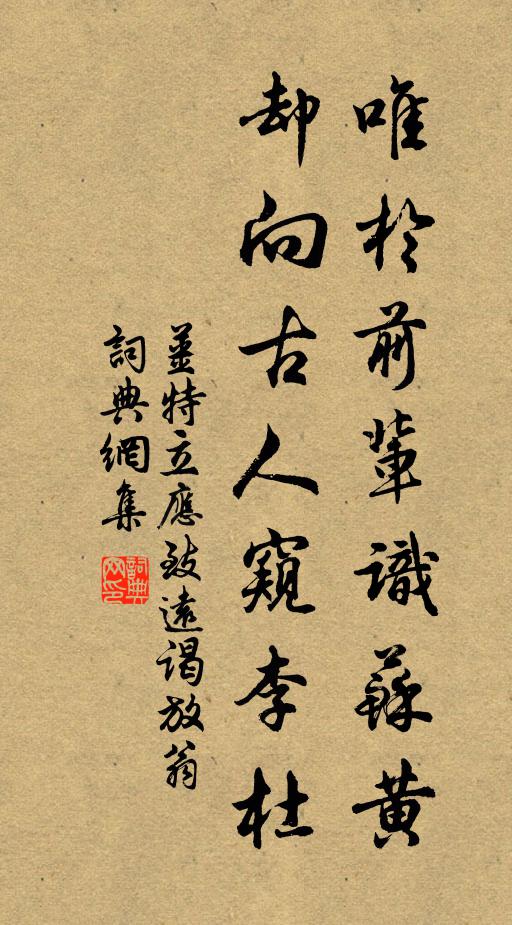 唯於前輩識蘇黄
却向古人窺李杜
姜特立應致遠謁放翁
詞典網集
詞典網印